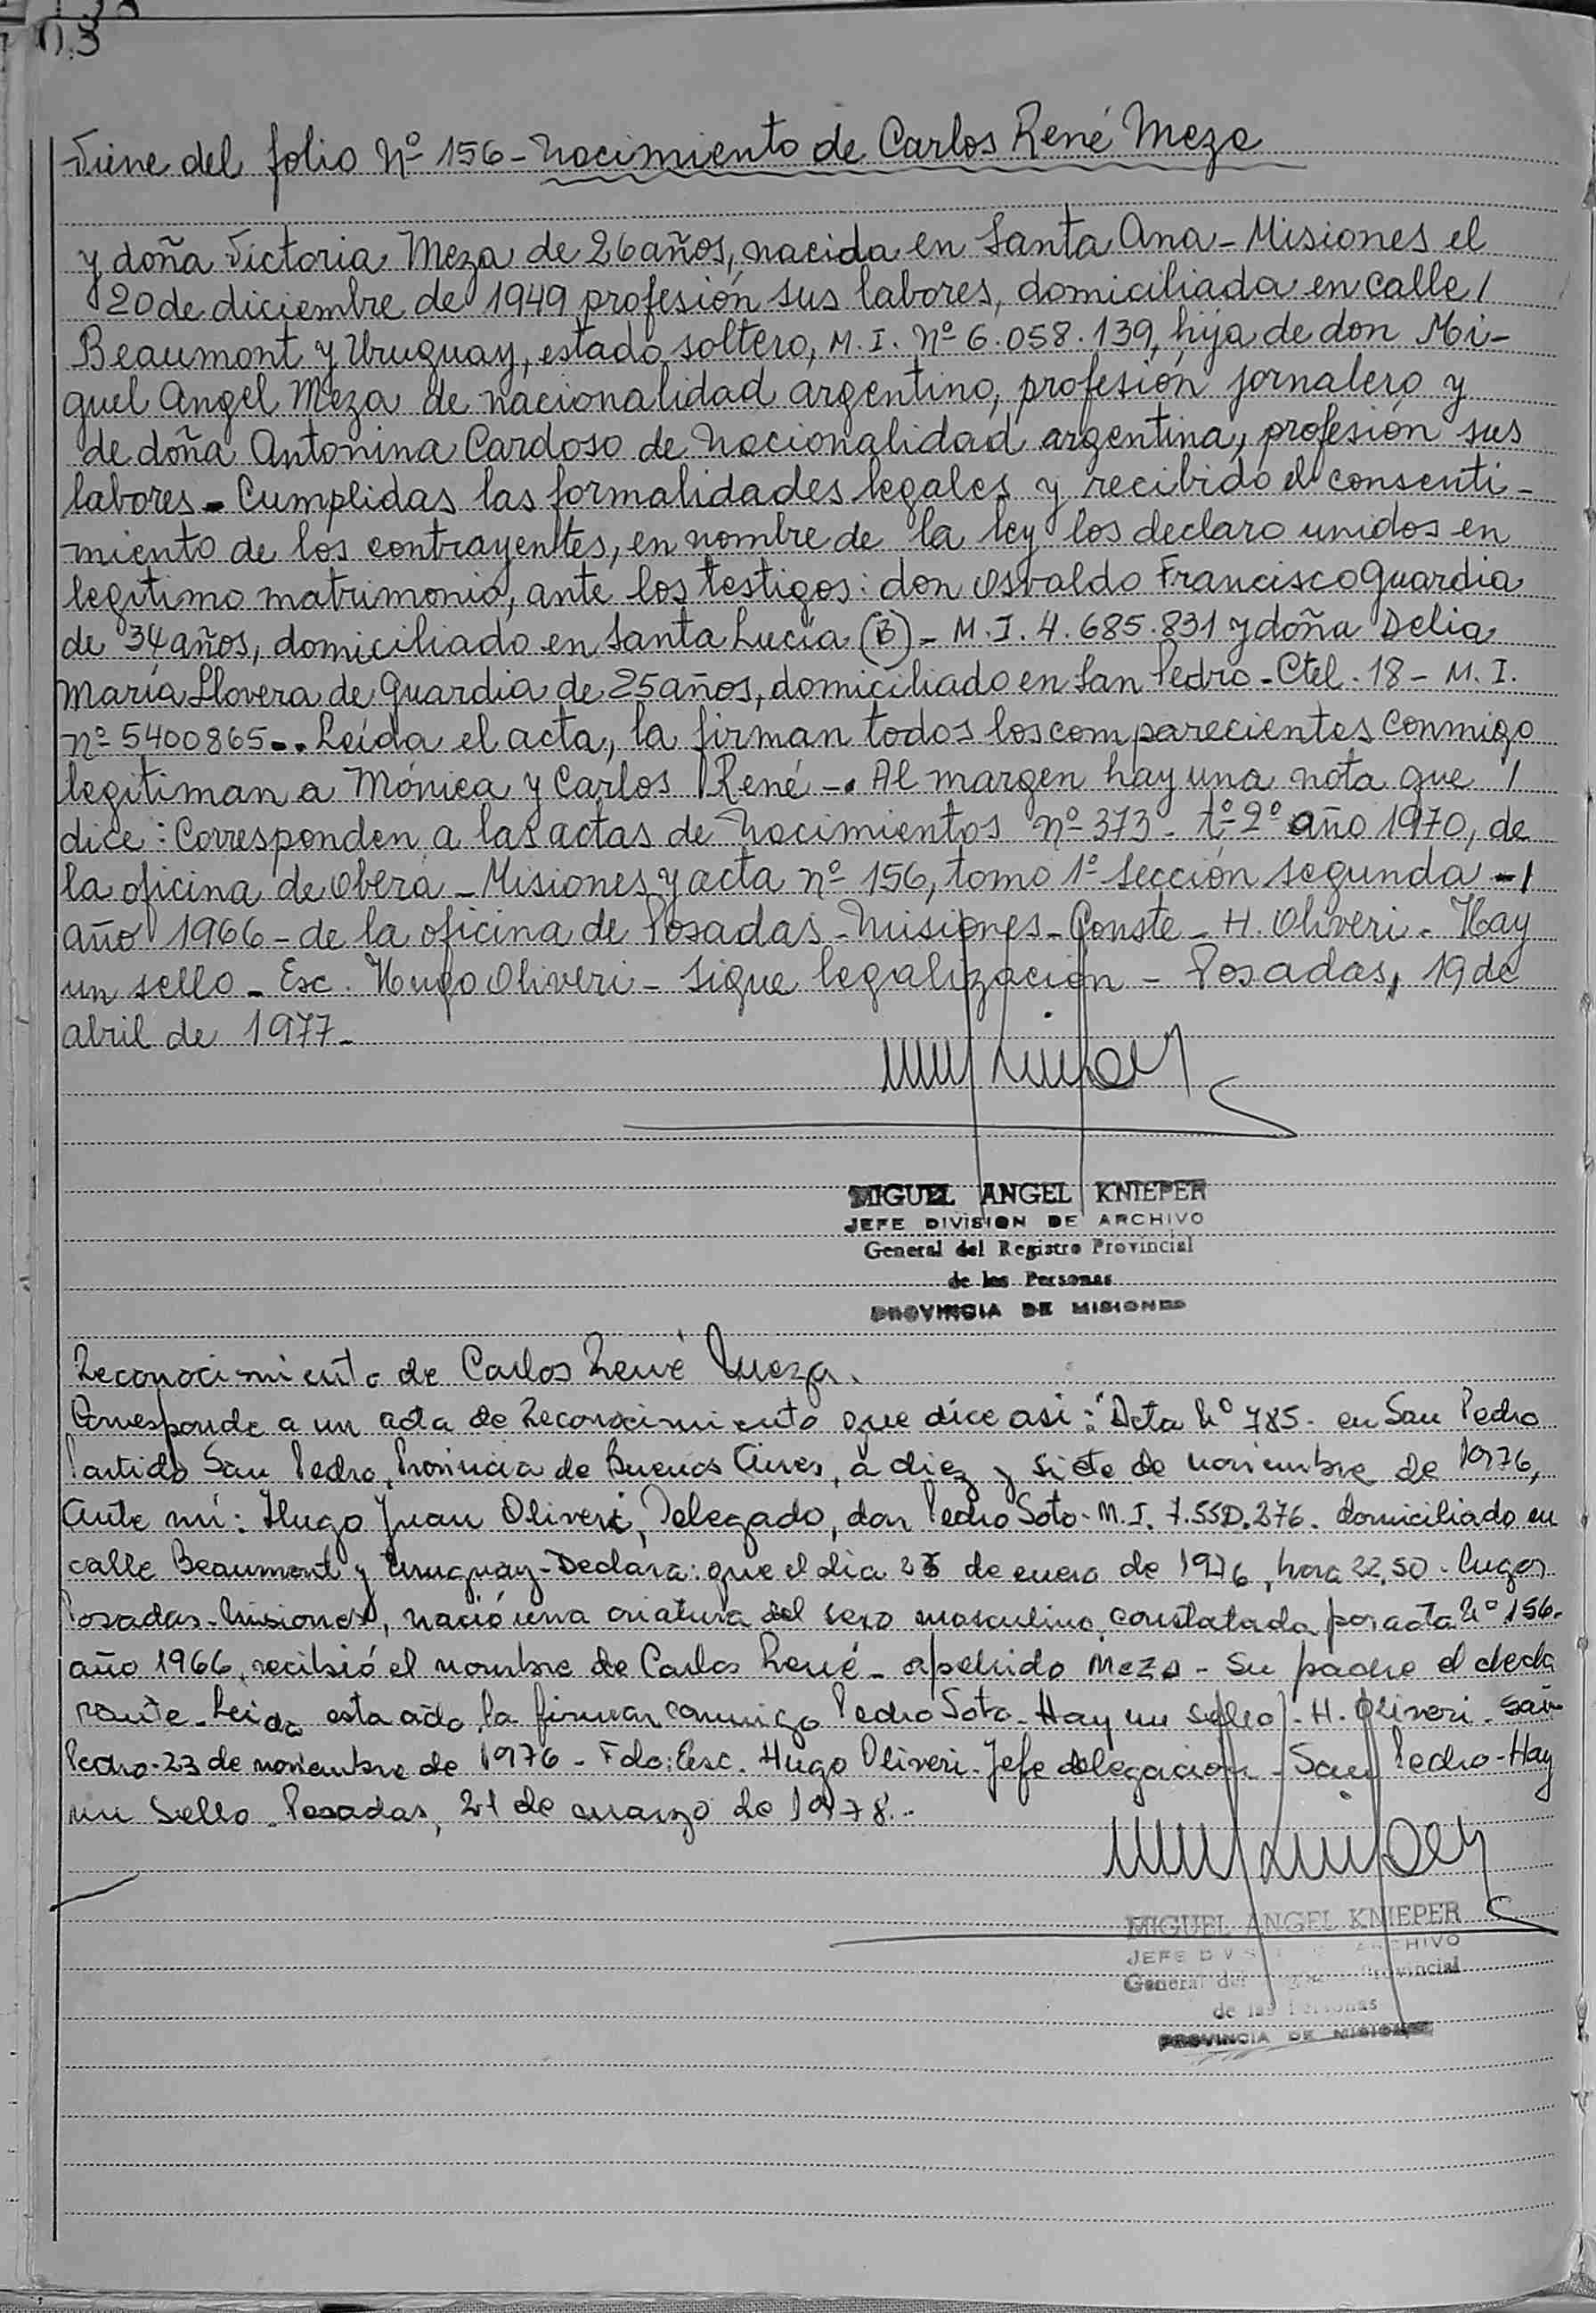 Viene del folio Nº 156 - Nacimiento de Carlos René Meza
y doña Victoria Meza de 26 años, nacida en Santa Ana - Misiones el
20 de diciembre de 1949 profesión sus labores, domiciliada en calle /
Beaumont y Uruguay, estado soltero, M. I. Nº 6.058.139, hija de don Mi-
guel Angel Meza de nacionalidad argentino, profesión jornalero y
de doña Antonina Cardoso de nacionalidad argentina, profesión sus
labores - Cumplidas las formalidades legales y recibido el consenti-
miento de los contrayentes, en nombre de la ley los declaro unidos en
legitimo matrimonio, ante los testigos: don Osvaldo Francisco Guardia
de 34 años, domiciliado en Santa Lucía (B) - M. I. 4.685.831 y doña Delia
María Llovera de Guardia de 25 años, domiciliado en San Pedro - Ctel. 18 - M. I.
Nº 5400865 -. Leída el acta, la firman todos los comparecientes conmigo
legitiman a Mónica y Carlos René -. Al margen hay una nota que /
dice: Corresponden a las actas de nacimientos nº 373 - tº 2º año 1970, de
la oficina de Oberá - Misiones y acta nº 156, tomo 1º sección segunda - /
año 1966 - de la oficina de Posadas - Misiones - Conste - H. Oliveri - Hay
un sello - Esc. Hugo Oliveri - Sigue legalización - Posadas, 19 de
abril de 1977 -
MIGUEL ANGEL KNIEPER
JEFE DIVISION DE ARCHIVO
General del Registro Provincial
de las Personas
PROVINCIA DE MISIONES
Reconocimiento de Carlos René Meza.
Corresponde a un acta de Reconocimiento que dice asi: "Acta Nº 785 - en San Pedro
Partido San Pedro, Provincia de Buenos Aires, a diez y siete de noviembre de 1976,
Ante mí: Hugo Juan Oliveri, Delegado, don Pedro Soto - M. I. 7.550.276 - domiciliado en
calle Beaumont y Uruguay - Declara: que el dia de enero de hora 22,50 - Lugar
Posadas - Misiones, nació una criatura del sexo masculino, constatada por acta Nº 156 -
año 1966, recibió el nombre de Carlos René - apellido Meza - Su padre el decla
rante - Leida esta acta, la firman conmigo Pedro Soto - Hay un sello) - H. Oliveri - San
Pedro - 23 de noviembre de 1976 - Fdo: Esc. Hugo Oliveri - Jefe delegación - San Pedro - Hay
un Sello - Posadas, 21 de marzo de 1978 -
MIGUEL ANGEL KNIEPER
JEFE ARCHIVO
General del Provincial
de las Personas
PROVINCIA DE MISIONES